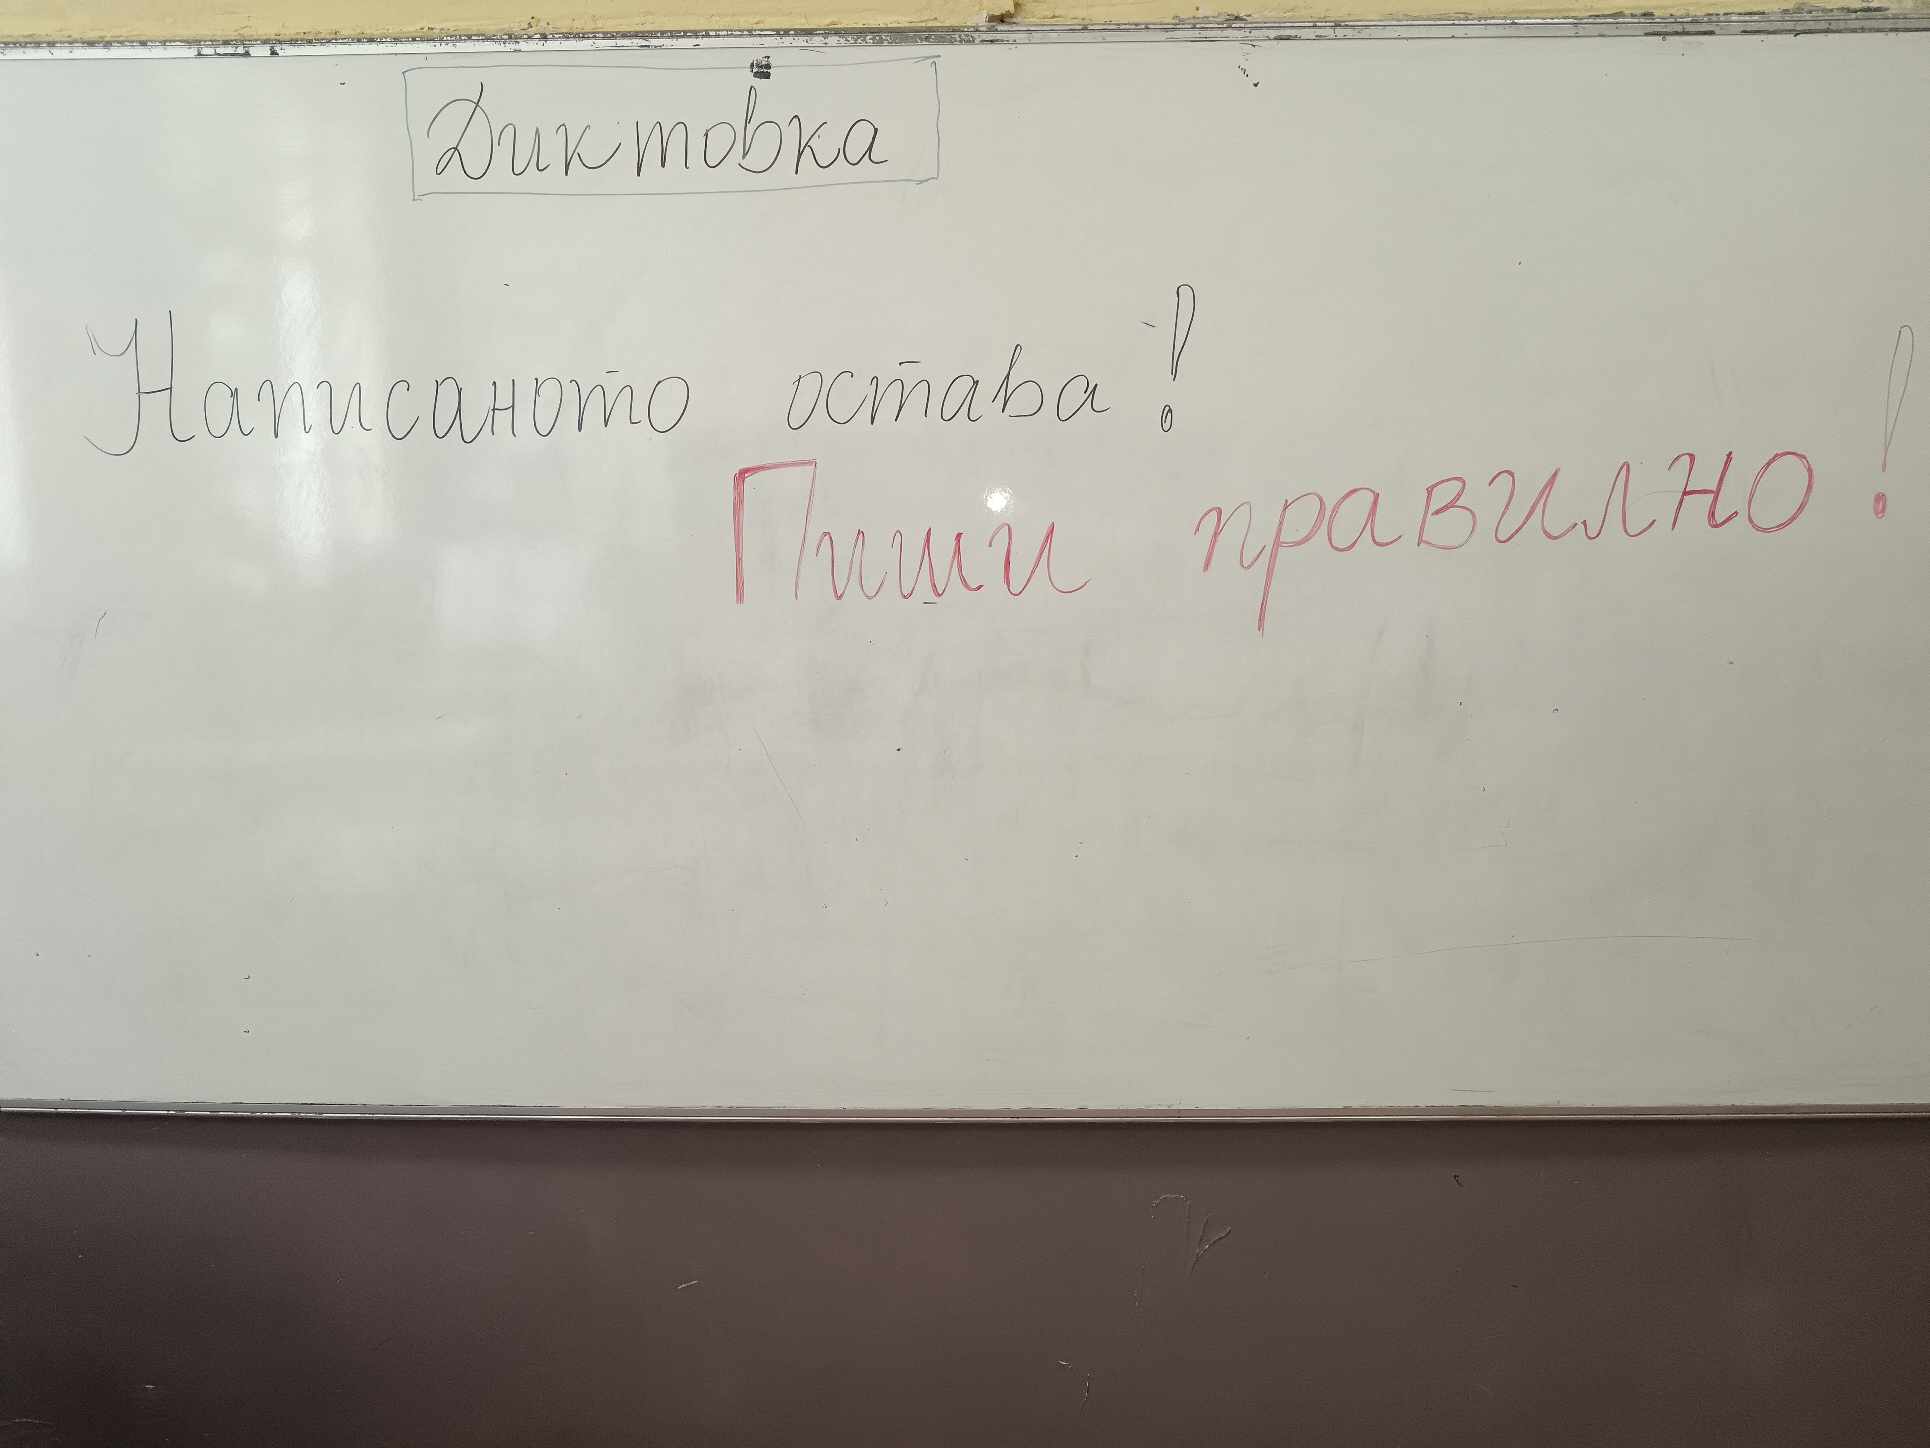 Диктовка
Написаното остава!
Пиши правилно!